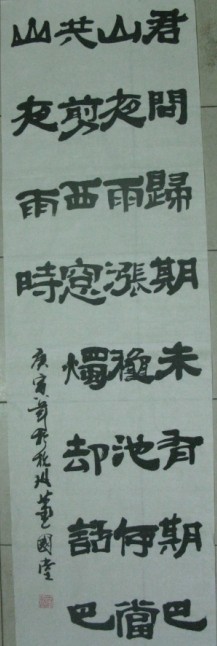 君問歸期未有期巴
山夜雨漲穐池何當
共剪西窓燭却話巴
山夜雨時
庚寅 國堂